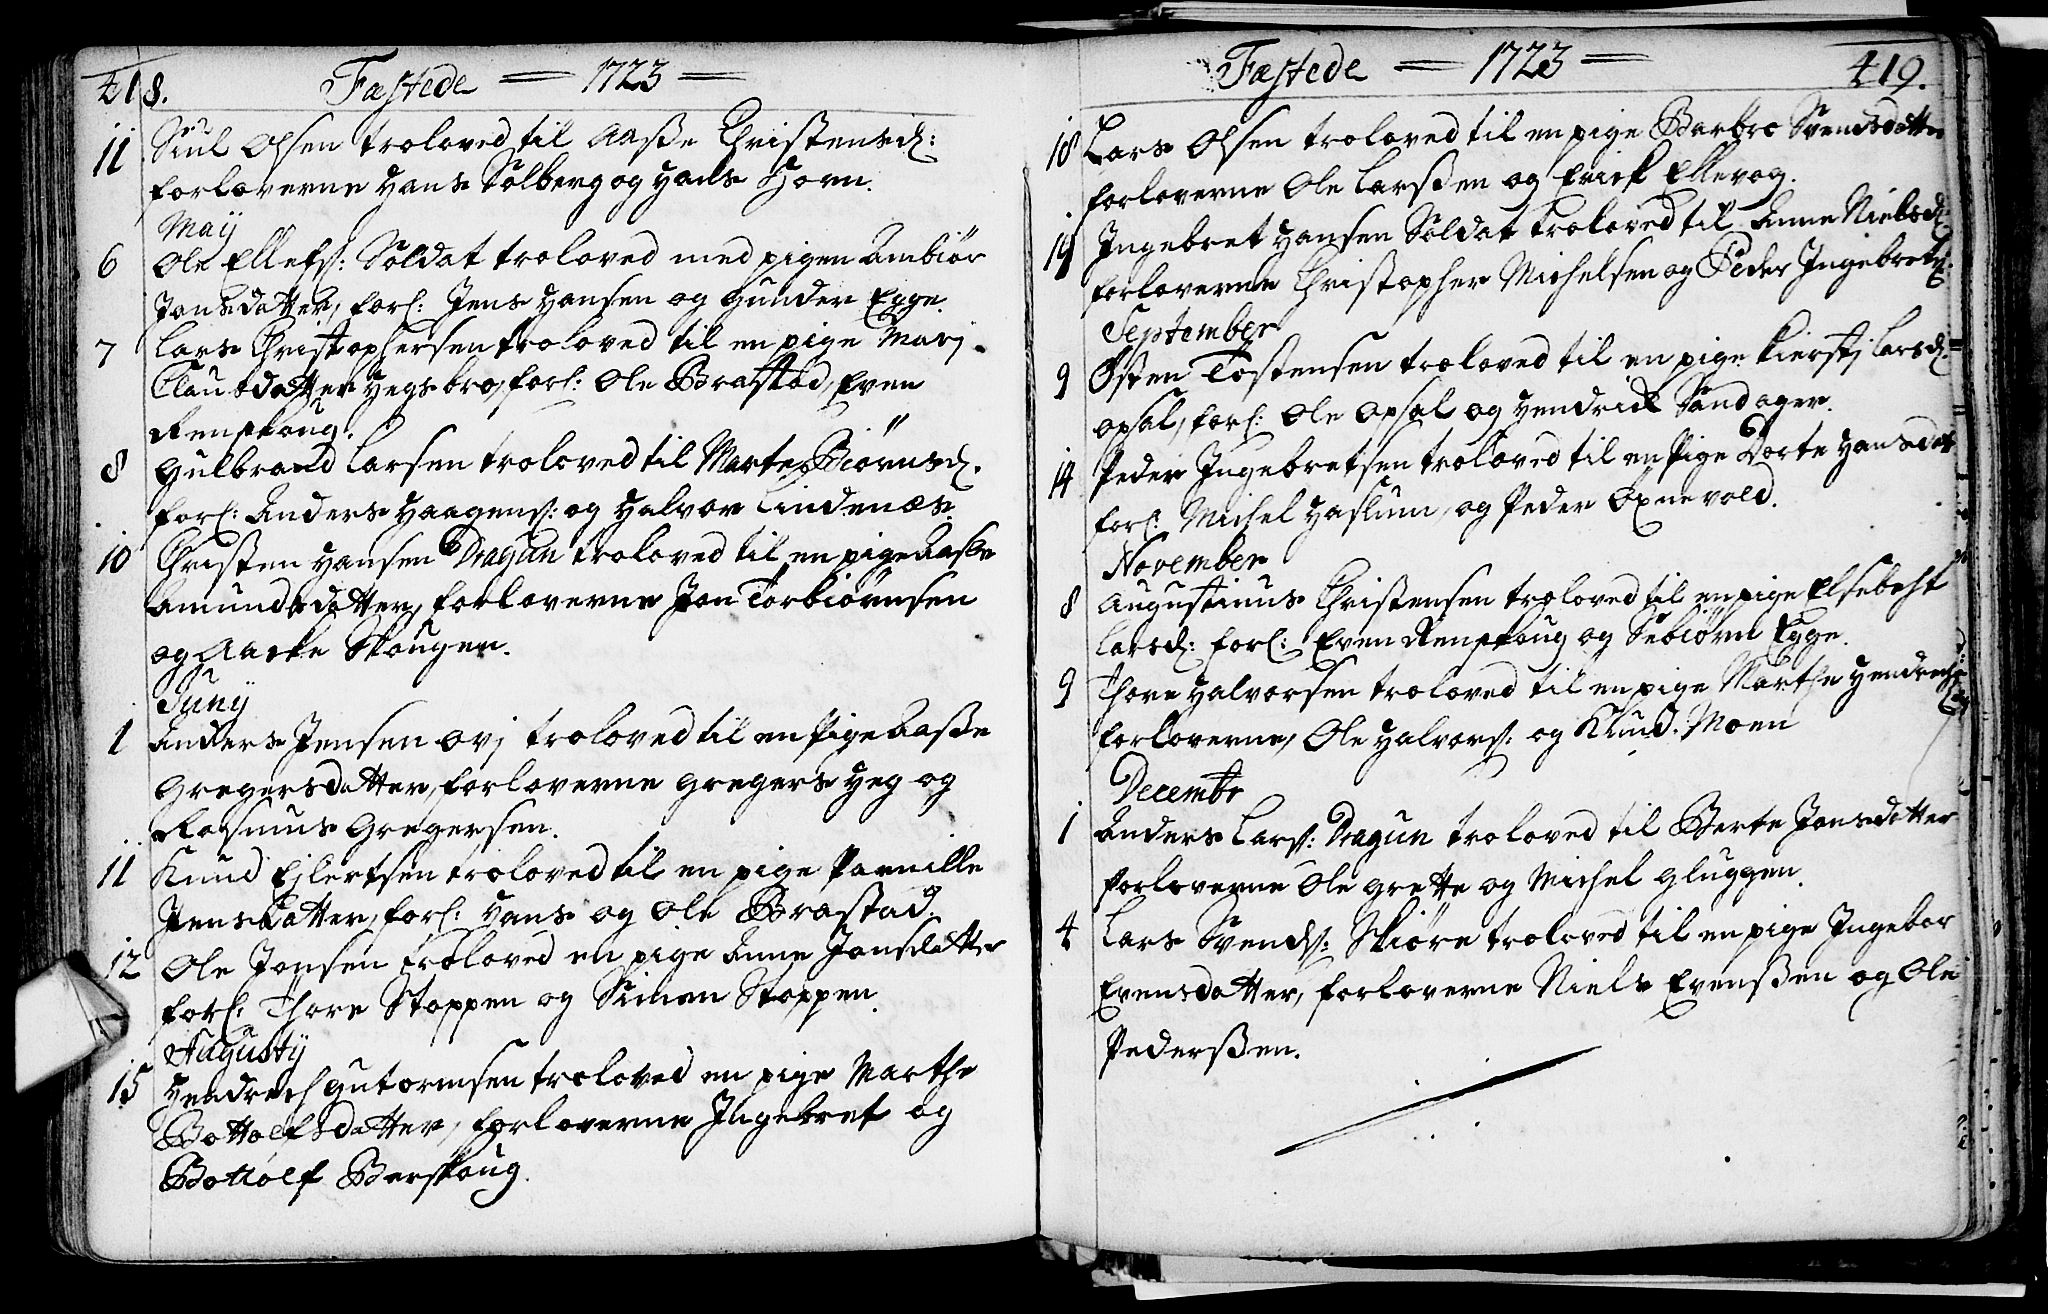 418. Fæstede = 1723 =
11 Siul Olsen troloved til Aaße Christensd:
forloverne Hans Solberg og Hans Horn.
May
6 Ole Ellefs: Soldat troloved med pigen Anbiør
Jonsdatter, forl: Jens Hansen og Gunder Egge.
7 Lars Christophersen troloved til en pige Marj
Clausdatter Hegsbro, forl: Ole Brastad, Even
Renskoug.
8 Gulbrand Larsen troloved til Marte Biørnsd.
forl: Anders Haagens: og Halvor Lindenæs.
10 Christen Hansen Dragun troloved til en pige Aaße
Amundsdatter, forloverne Jon Torbiørnsen
og Aacke Skougen.
Juny
1 Anders Jensen Ovj troloved til en Pige Aaße
Gregersdatter, forloverne Gregers Heg og
Rasmus Gregersen.
11 Knud Ejlertsen troloved til en pige Pernille
Jensdatter, forl: Hans og Ole Brastad.
12 Ole Jonsen troloved en pige Anne Jonsdatter
forl: Thore Stoppen og Simen Stoppen.
Augusty
15 Hendrech Gutormsen troloved en pige Marthe
Bottolfsdatter, forloverne Ingebret og
Bottolf Berskoug.
Fæstede = 1723 = 419.
18 Lars Olsen troloved til en pige Barbro Svendsdatter
forloverne Ole Larsßen og Erick Ellevog.
19 Ingebret Hansen Soldat troloved til Anne Nielsd:
forloverne Christopher Michelsen og Peder Ingebrets:
September
9 Østen Tostensen troloved til en pige Kierstj Larsd:
Opsal, forl: Ole Opsal og Hendrick Sandager.
14 Peder Ingebretsen troloved til en Pige Dorte Hansdat
forl: Michel Haslum, og Peder Oxnevold.
November
8 Augustinus Christensen troloved til en pige Elsebeht
Larsd: forl: Even Renskoug og Sebiørn Egge.
9 Thore Halvorsen troloved til en pige Marthe Hendrechs
forloverne, Ole Halvors: og Knud Moen
Decembr
1 Anders Lars: Dragun troloved til Berte Jonsdatter
forloverne Ole Grette og Michel Gluggen.
4 Lars Svends: Skiøre troloved til en pige Ingebor
Evensdatter, forloverne Niels Evenßen og Ole
Pederßen.